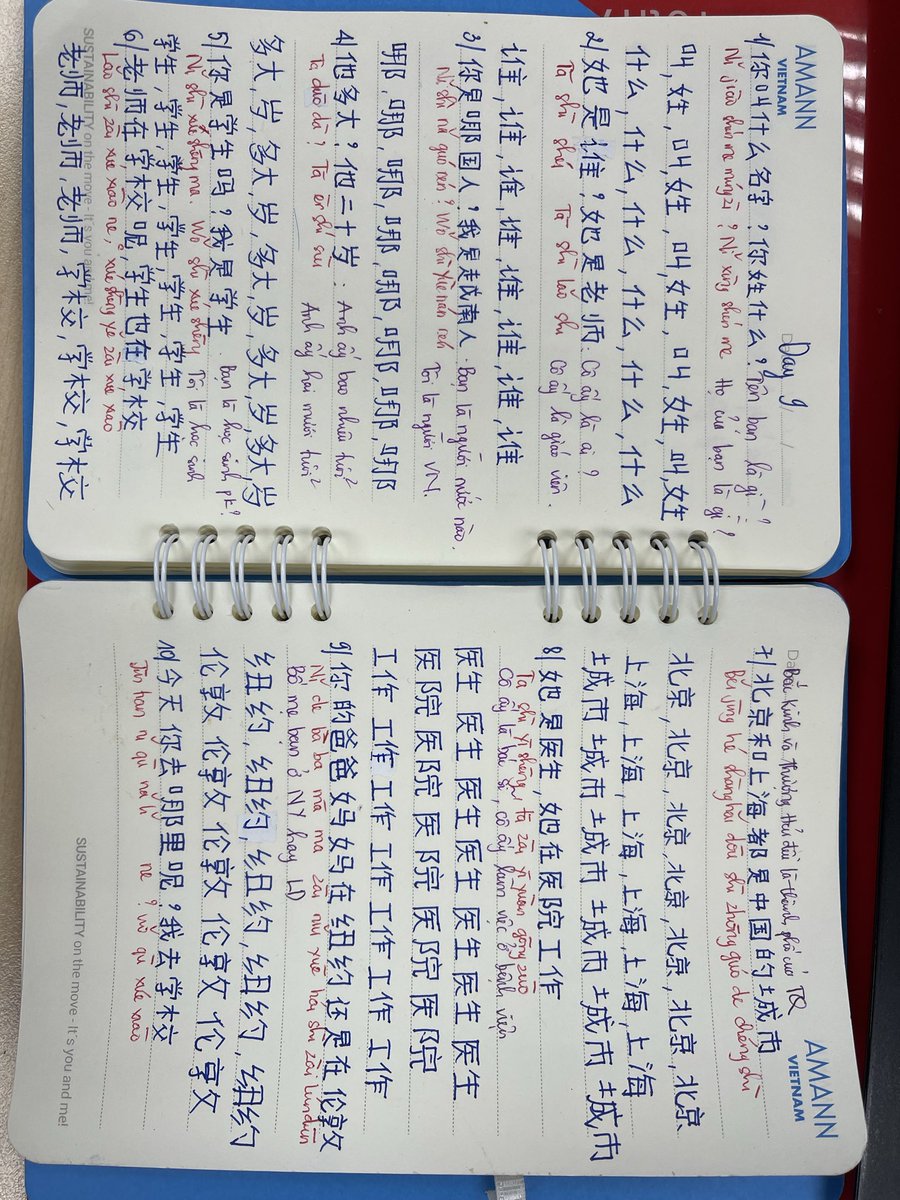 AMANN
VIETNAM
Day 9
1/ 你叫什么名字？你姓什么？Tên bạn là gì?
Nǐ jiào shén me míng zì? Nǐ xìng shén me Họ của bạn là gì?
叫,姓,叫,姓,叫,姓,叫,姓,叫,姓
什么,什么,什么,什么,什么,什么
2/ 她是谁？她是老师. Cô ấy là ai?
Tā shì shéi Tā shì lǎo shī Cô ấy là giáo viên.
谁,谁,谁,谁,谁,谁,谁,谁
3/ 你是哪国人？我是越南人. Bạn là người nước nào.
Nǐ shì nǎ guó rén? Wǒ shì Yuè nán rén Tôi là người VN.
哪,哪,哪,哪,哪,哪,哪
4/ 他多大？他二十岁. Anh ấy bao nhiêu tuổi?
Tā duō dà? Tā èr shí suì Anh ấy hai mươi tuổi
多大,岁,多大,岁,多大,岁,多大,岁,多大,岁
5/ 你是学生吗？我是学生. Bạn là học sinh pk?
Nǐ shì xué shēng ma. Wǒ shì xué shēng Tôi là học sinh
学生,学生,学生,学生,学生,学生,学生
6/ 老师在学校呢,学生也在学校
Lǎo shī zài xué xiào ne, xué shēng yě zài xué xiào
老师,老师,老师,老师,学校,学校,学校
SUSTAINABILITY on the move - It's you and me!
AMANN
VIETNAM
Bắc kinh và thượng hải đều là thành phố của TQ
7/ 北京和上海都是中国的城市
Běi jīng hé shàng hǎi dōu shì zhōng guó de chéng shì
北京,北京,北京,北京,北京,北京,北京
上海,上海,上海,上海,上海,上海
城市 城市 城市 城市 城市 城市
8/ 她是医生,她在医院工作
Tā shì yī shēng, tā zài yī yuàn gōng zuò
Cô ấy là bác sĩ, cô ấy làm việc ở bệnh viện
医生 医生 医生 医生 医生 医生 医生
医院 医院 医院 医院 医院 医院
工作 工作 工作 工作 工作 工作 工作
9/ 你的爸爸妈妈在纽约还是在伦敦
Nǐ de bà ba mā ma zài niǔ yuē hái shì zài lún dūn
Bố mẹ bạn ở NY hay LD
纽约,纽约,纽约,纽约,纽约,纽约
伦敦 伦敦 伦敦 伦敦 伦敦 伦敦
10/ 今天你去哪里呢？我去学校
nǐ qù nǎ lǐ ne? wǒ qù xué xiào
SUSTAINABILITY on the move - It's you and me!